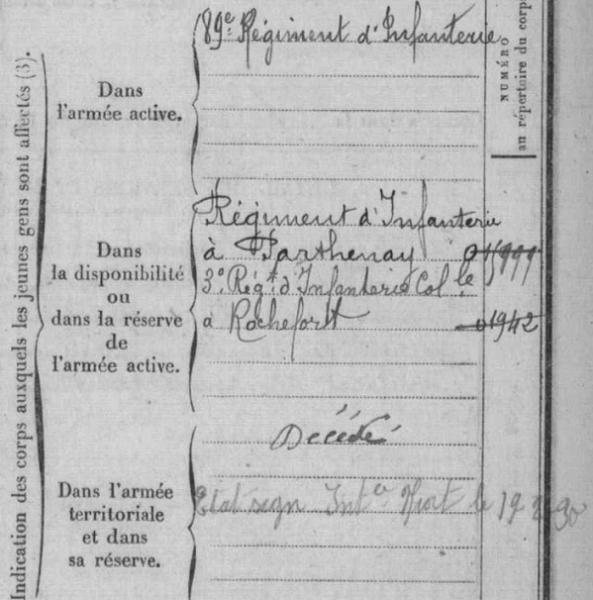 Indication des corps auxquels les jeunes gens sont affectés (3).
NUMÉRO
au répertoire du corps
Dans
l'armée active.
89e Régiment d'Infanterie
Dans
la disponibilité
ou
dans la réserve
de
l'armée active.
Régiment d'Infanterie
à Parthenay
3e Régt d'Infanterie Colle
à Rochefort 01942
Décédé
Dans l'armée
territoriale
et dans
sa réserve.
Etat sign Niort le 19